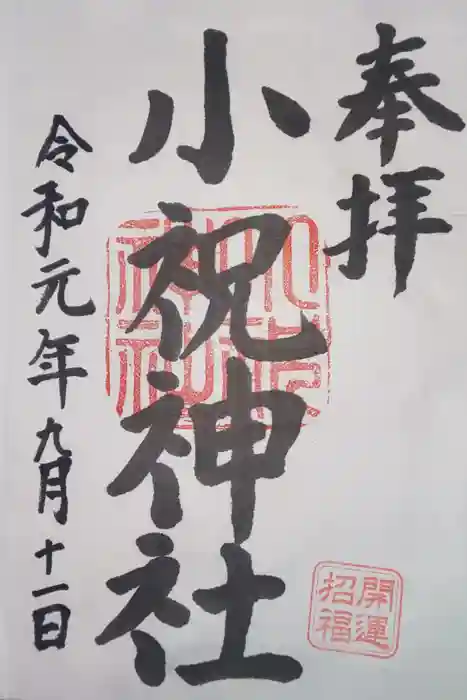 奉拝
小祝神社
令和元年九月十一日
小祝
神社
開運
招福